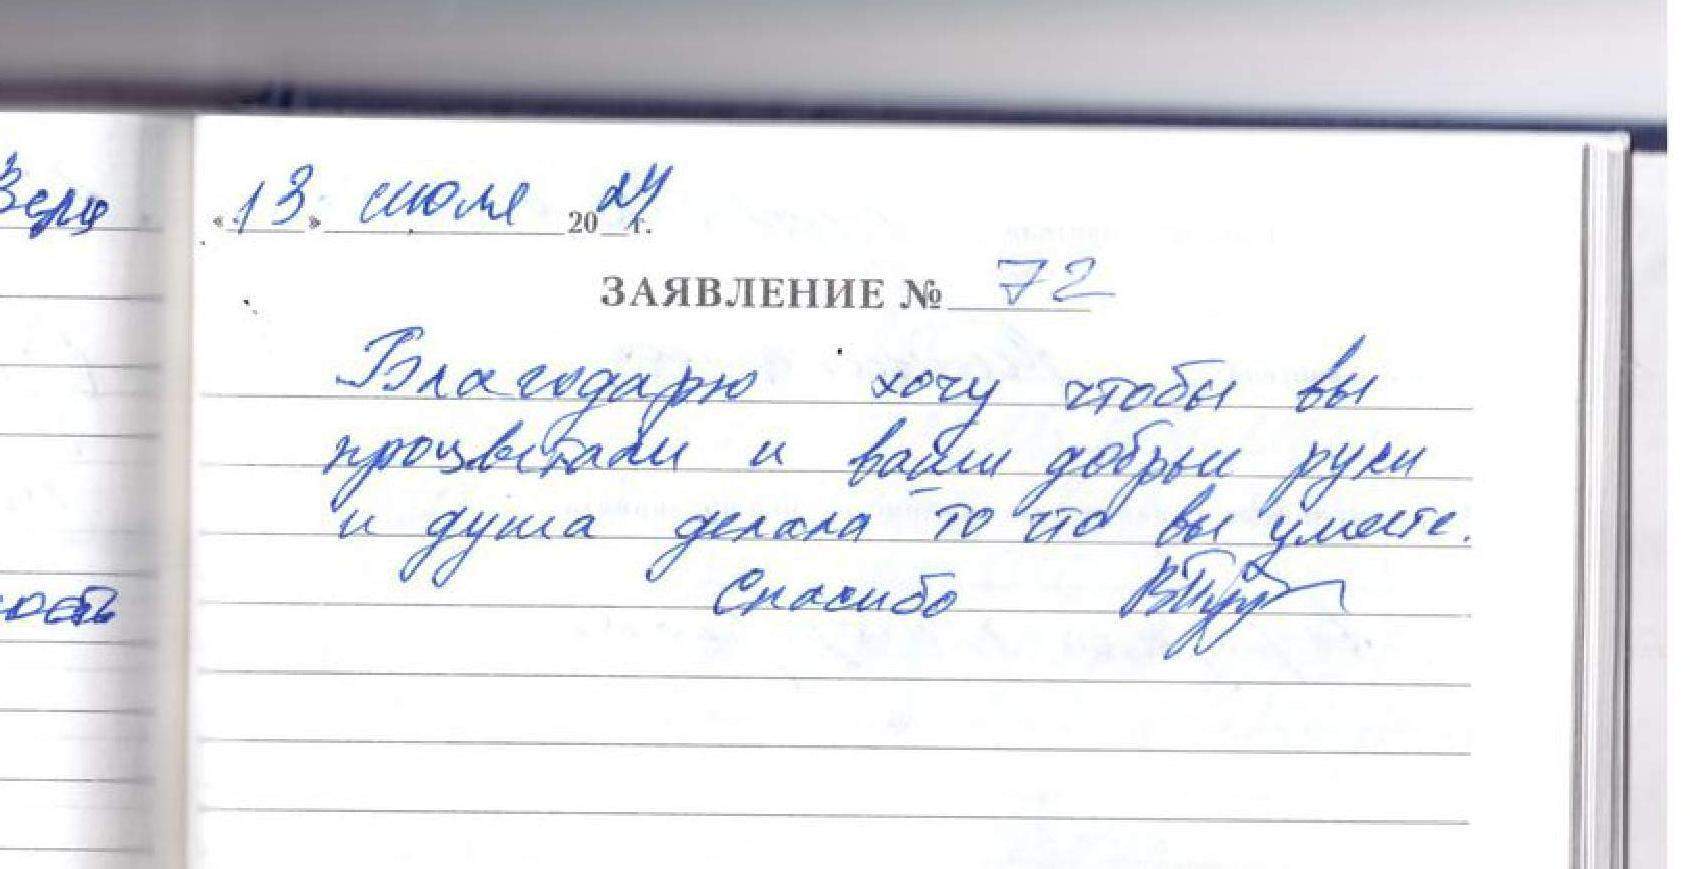 «13» июля 2024 г.
ЗАЯВЛЕНИЕ № 72
Благодарю хочу чтобы вы
процветали и ваши добрые руки
и душа делала то что вы умеете.
Спасибо